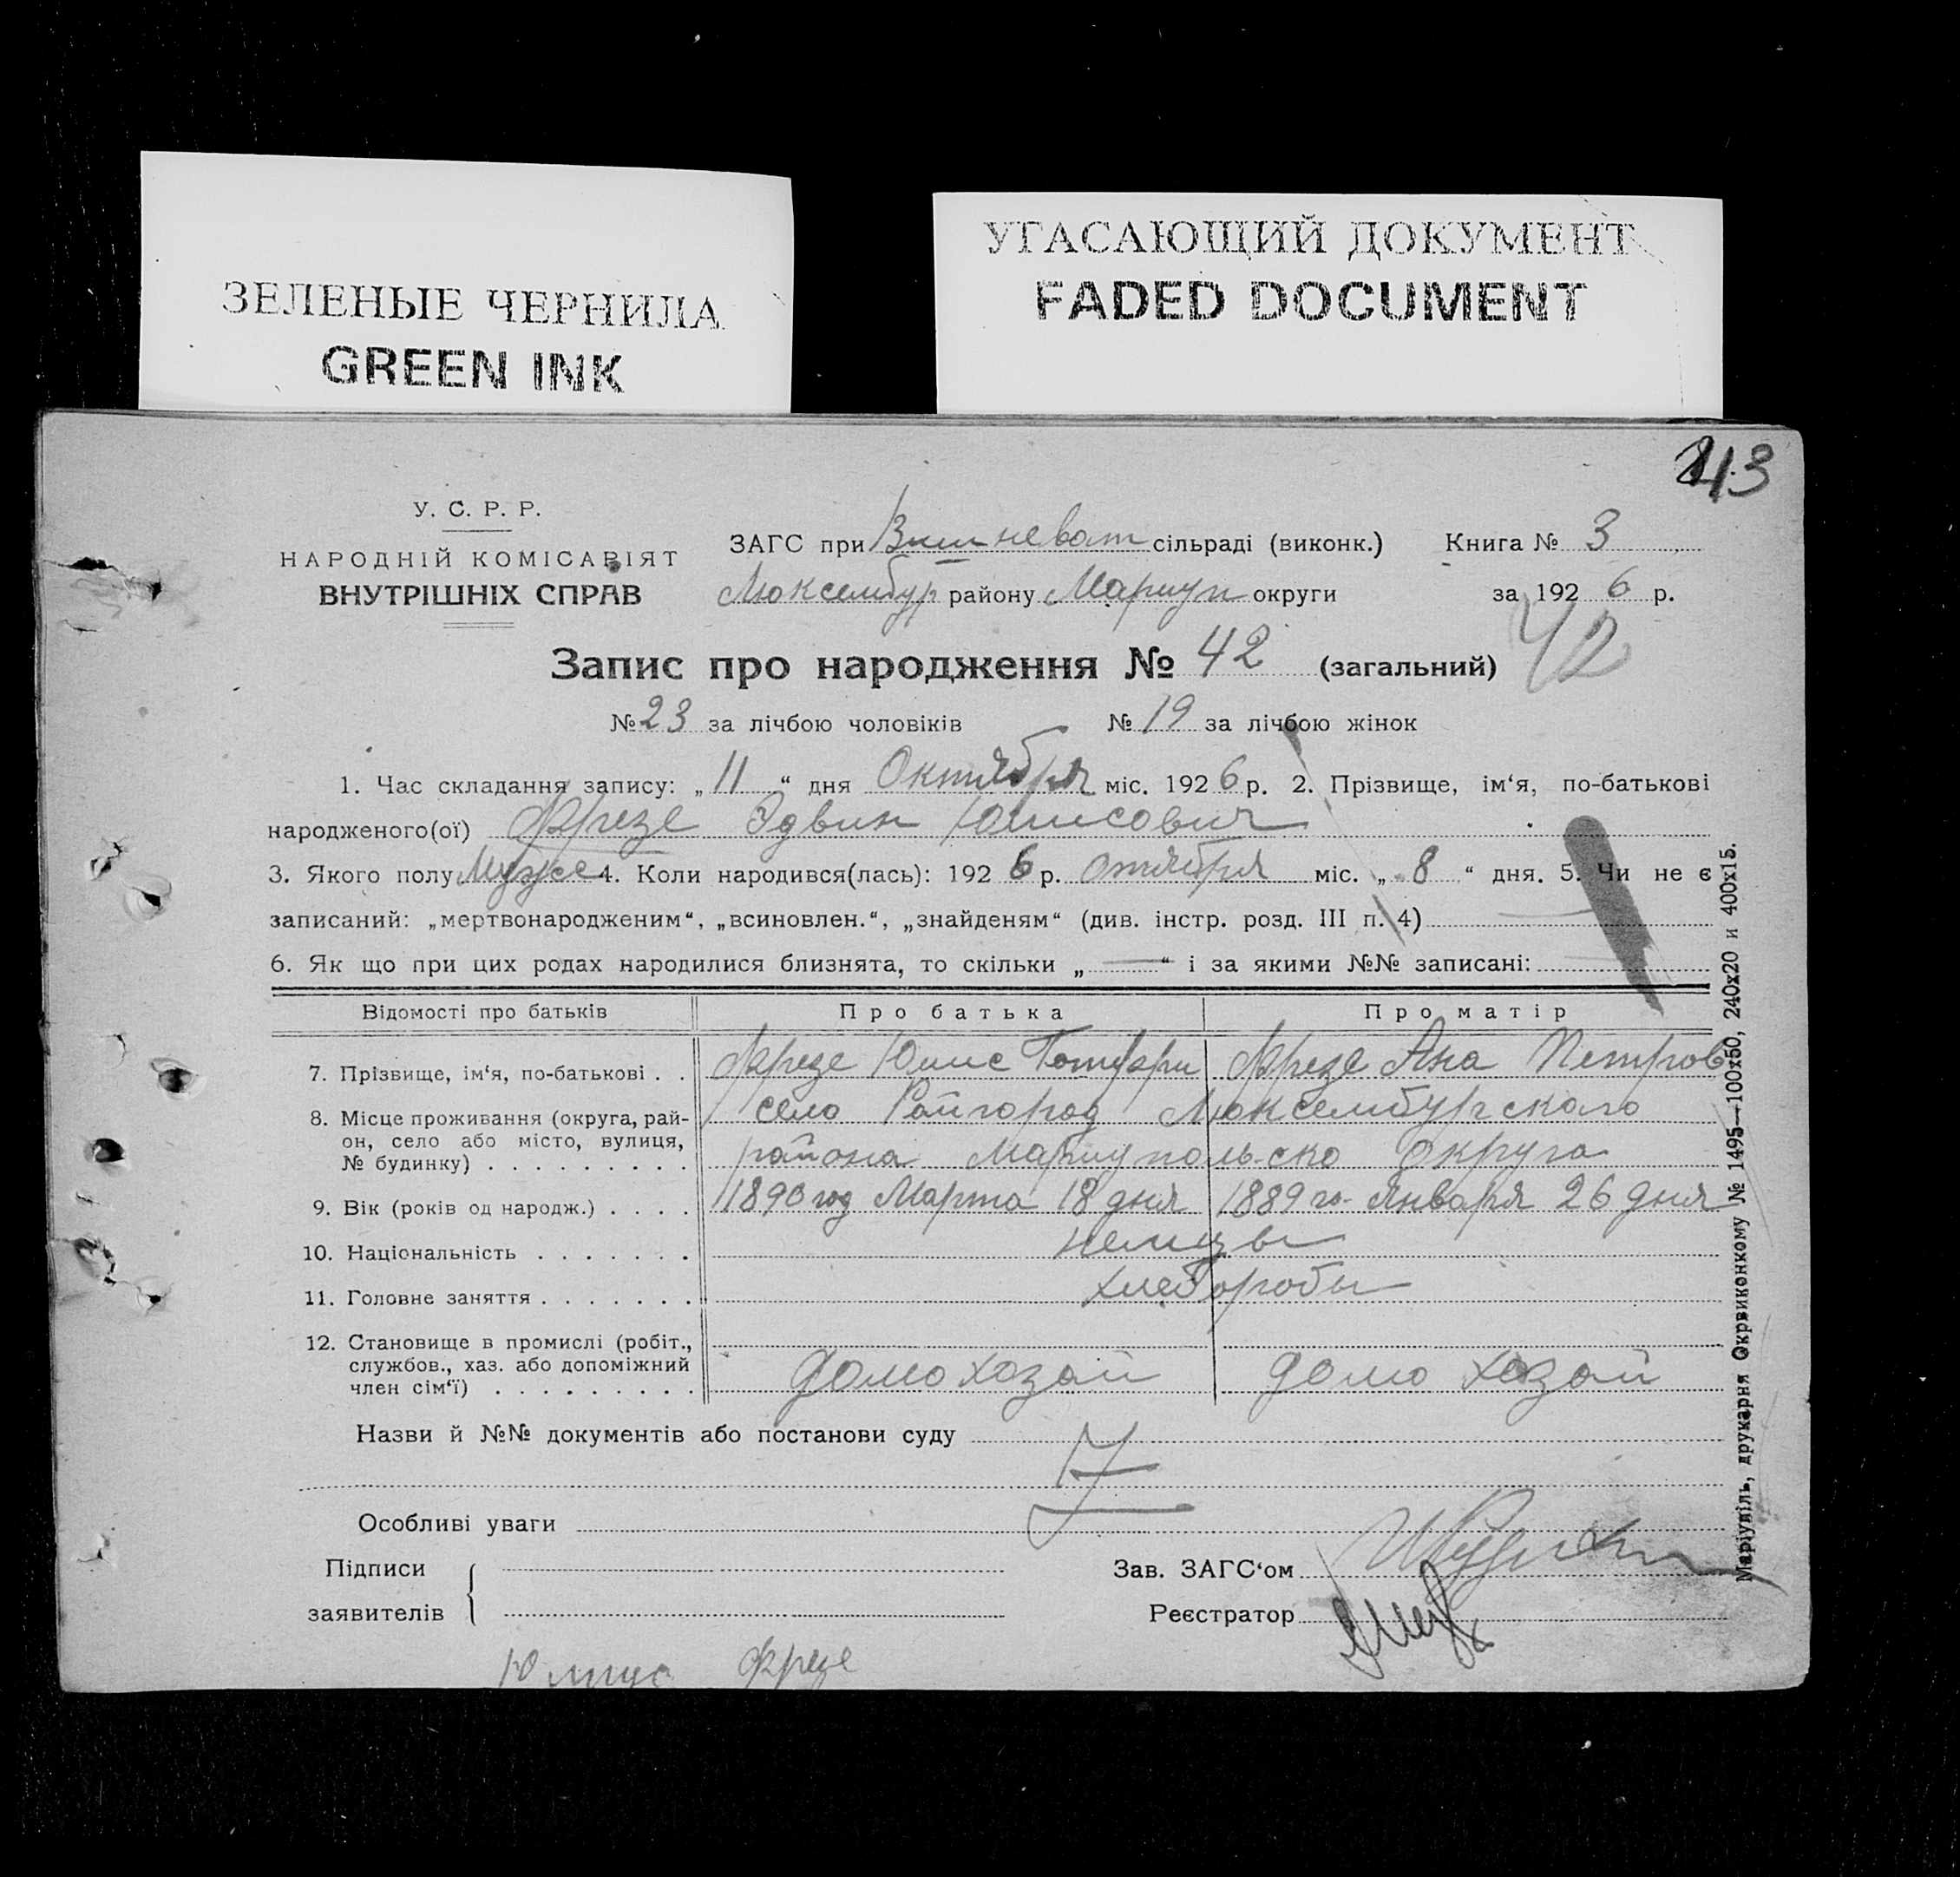 ЗЕЛЕНЫЕ ЧЕРНИЛА
GREEN INK
УГАСАЮЩИЙ ДОКУМЕНТ
FADED DOCUMENT
43
У. С. Р. Р.
НАРОДНІЙ КОМІСАРІЯТ
ВНУТРІШНІХ СПРАВ
ЗАГС при Вишневат сільраді (виконк.) Книга № 3
Люксембур району Мариуп округи за 1926 р.
Запис про народження № 42 (загальний) 42
№ 23 за лічбою чоловіків № 19 за лічбою жінок
1. Час складання запису: „11“ дня Октября міс. 1926 р. 2. Прізвище, ім‘я, по-батькові
народженого(ої) Фрезе Эдвин Юлисович
3. Якого полу Мужс 4. Коли народився(лась): 1926 р. октября міс. „8“ дня. 5. Чи не є
записаний: „мертвонародженим“, „всиновлен.“, „знайденям“ (див. інстр. розд. III п. 4)
6. Як що при цих родах народилися близнята, то скільки „—“ і за якими №№ записані:
Відомості про батьків Про батька Про матір
7. Прізвище, ім‘я, по-батькові . . Фрезе Юлис Готфри Фрезе Ана Петров
8. Місце проживання (округа, рай-
он, село або місто, вулиця,
№ будинку) . . . . . . . . .
село Райгород Люксембургского
района Мариуполь-ско округа
9. Вік (років од народж.) . . . . 1890 год Марта 18 дня 1889 го- Января 26 дня
10. Національність . . . . . . . немцы
11. Головне заняття . . . . . . . хлеборобы
12. Становище в промислі (робіт.,
службов., хаз. або допоміжний
член сім‘ї) . . . . . . . . .
домохозай домо хозай
Назви й №№ документів або постанови суду
Особливі уваги
Підписи
заявителів
Зав. ЗАГС‘ом
Реєстратор
Юлиус Фрезе
Маріупіль, друкарня Окрвиконкому № 1495—100х50, 240х20 и 400х15.